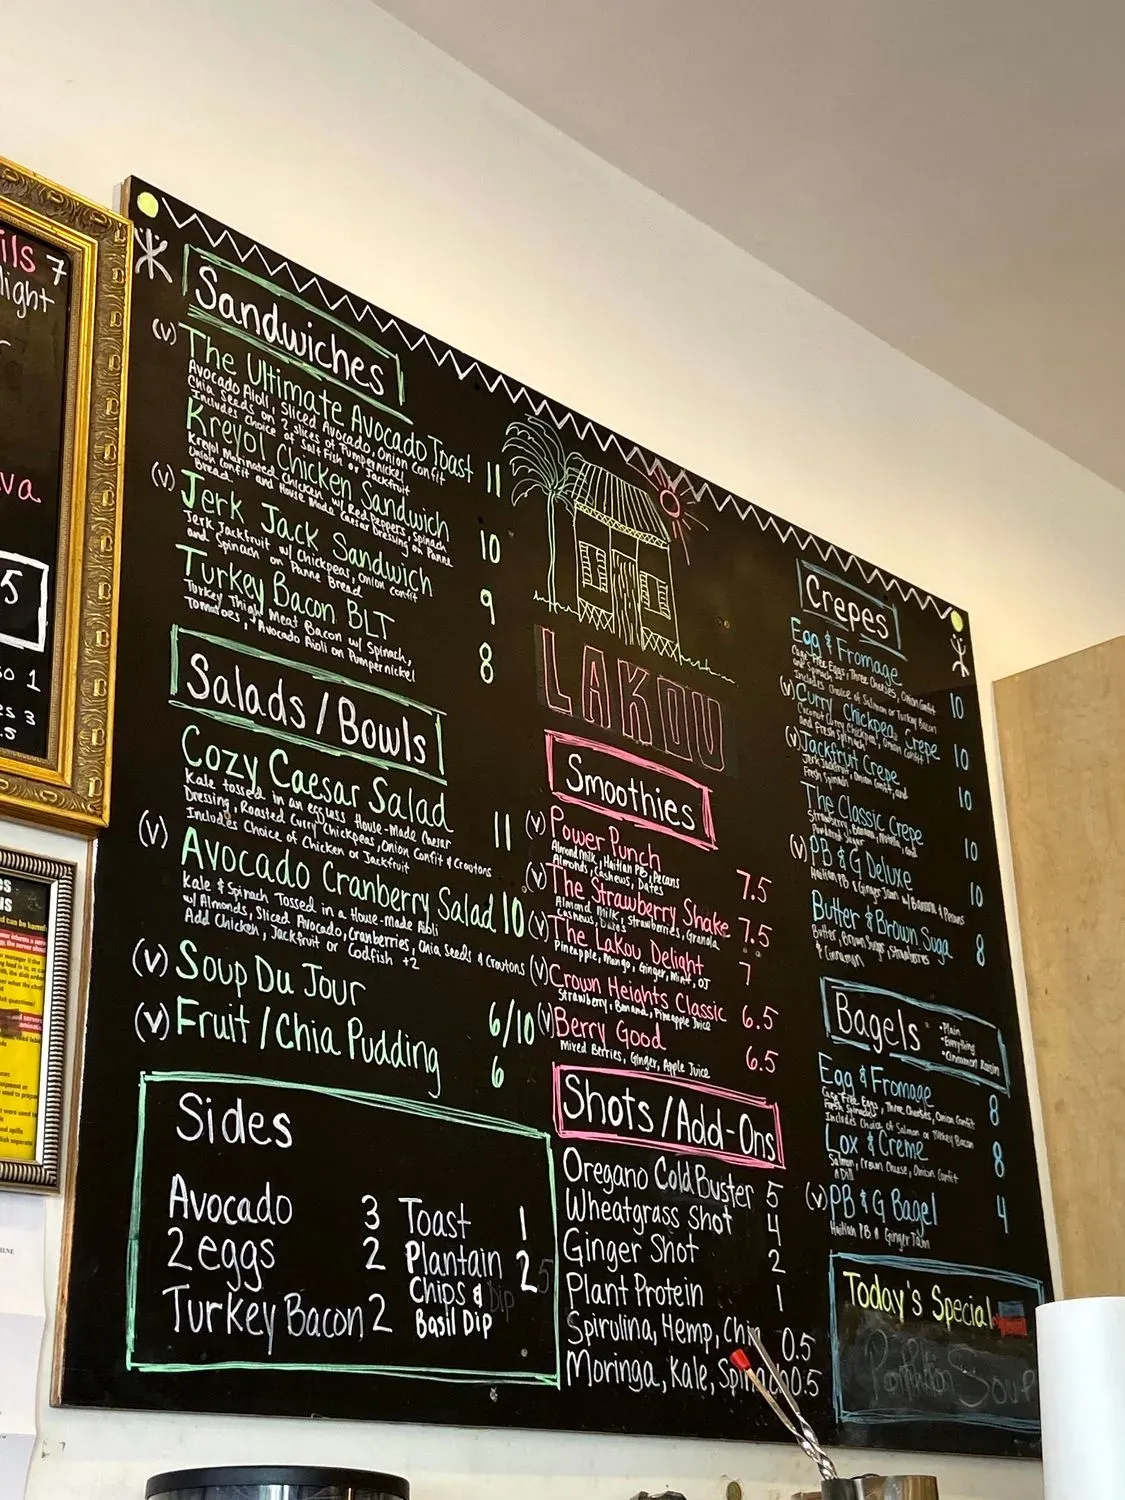 ils 7
light
va
5
so 1
es 3
.5
Sandwiches
(v) The Ultimate Avocado Toast 11
Avocado Aioli, Sliced Avocado, Onion Confit
Chia Seeds on 2 slices of Pumpernickel
Includes Choice of Saltfish or Jackfruit
Kreyol Chicken Sandwich 10
Kreyol Marinated Chicken w/ Red Peppers, Spinach
Onion Confit and House Made Caesar Dressing on Panne
Bread
(v) Jerk Jack Sandwich 9
Jerk Jackfruit w/ Chickpeas, Onion Confit
and Spinach on Panne Bread
Turkey Bacon BLT 8
Turkey Thigh Meat Bacon w/ Spinach,
Tomatoes, + Avocado Aioli on Pumpernickel
Salads / Bowls
Cozy Caesar Salad 11
Kale tossed in an eggless House-Made Caesar
Dressing, Roasted Curry Chickpeas, Onion Confit & Croutons
Includes Choice of Chicken or Jackfruit
(v) Avocado Cranberry Salad 10
Kale & Spinach Tossed in a House-Made Aioli
w/ Almonds, Sliced Avocado, Cranberries, Chia Seeds & Croutons
Add Chicken, Jackfruit or Codfish +2
(v) Soup Du Jour 6/10
(v) Fruit / Chia Pudding 6
Sides
Avocado 3
2 eggs 2
Turkey Bacon 2
Toast 1
Plantain 2
Chips &
Basil Dip
LAKOU
Smoothies
(v) Power Punch 7.5
Almond Milk, Haitian PB, Pecans
Almonds, Cashews, Dates
(v) The Strawberry Shake 7.5
Almond Milk, Strawberries, Granola
Cashews, Dates
(v) The Lakou Delight 7
Pineapple, Mango, Ginger, Mint, OJ
(v) Crown Heights Classic 6.5
Strawberry, Banana, Pineapple Juice
(v) Berry Good 6.5
Mixed Berries, Ginger, Apple Juice
Shots / Add-Ons
Oregano Cold Buster 5
Wheatgrass Shot 4
Ginger Shot 2
Plant Protein 1
Spirulina, Hemp, Chia 0.5
Moringa, Kale, Spinach 0.5
Crepes
Egg & Fromage 10
Cage Free Eggs, Three Cheeses, Onion Confit
and Spinach
Includes Choice of Salmon or Turkey Bacon
(v) Curry Chickpea Crepe 10
Coconut Curry Chickpeas, Onion Confit
and Fresh Spinach
(v) Jackfruit Crepe 10
Jerk Jackfruit, Onion Confit, and
Fresh Spinach
The Classic Crepe 10
Strawberry, Banana, Nutella, and
Powdered Sugar
(v) PB & G Deluxe 10
Haitian PB & Ginger Jam w/ Banana & Pecans
Butter & Brown Suga 8
Butter, Brown Sugar, Strawberries
& Cinnamon
Bagels
• Plain
• Everything
• Cinnamon Raisin
Egg & Fromage 8
Cage Free Eggs, Three Cheeses, Onion Confit
Fresh Spinach
Includes Choice of Salmon or Turkey Bacon
Lox & Creme 8
Salmon, Cream Cheese, Onion Confit
& Dill
(v) PB & G Bagel 4
Haitian PB & Ginger Jam
Today's Special
Soup